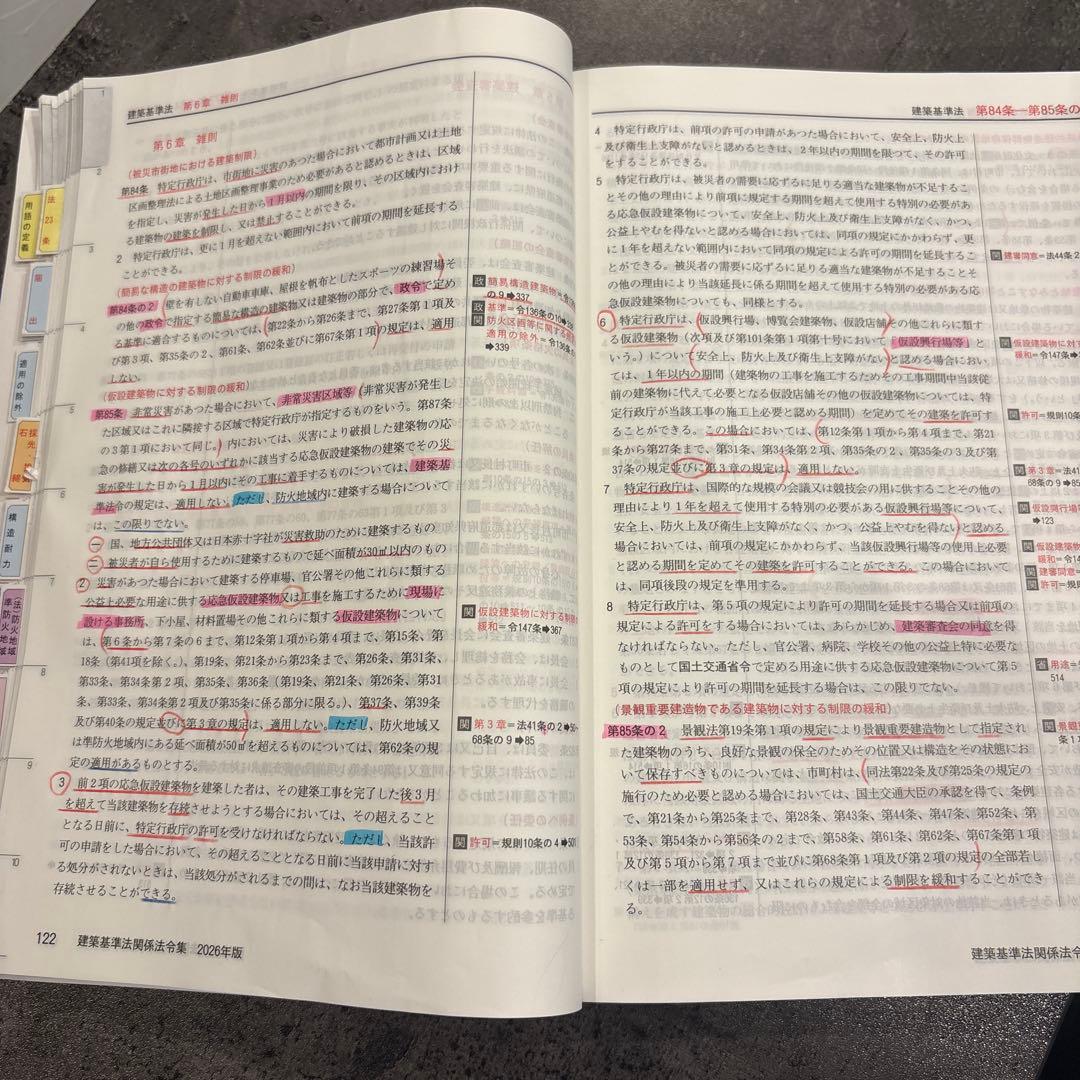 建築基準法 第6章 雑則
第6章 雑則
(被災市街地における建築制限)
第84条 特定行政庁は、市街地に災害のあつた場合において都市計画又は土地
区画整理法による土地区画整理事業のため必要があると認めるときは、区域
を指定し、災害が発生した日から1月以内の期間を限り、その区域内におけ
る建築物の建築を制限し、又は禁止することができる。
2 特定行政庁は、更に1月を超えない範囲内において前項の期間を延長する
ことができる。
(簡易な構造の建築物に対する制限の緩和)
第84条の2 壁を有しない自動車車庫、屋根を帆布としたスポーツの練習場そ
の他の政令で指定する簡易な構造の建築物又は建築物の部分で、政令で定め
る基準に適合するものについては、(第22条から第26条まで、第27条第1項及
び第3項、第35条の2、第61条、第62条並びに第67条第1項)の規定は、適用
しない。
(仮設建築物に対する制限の緩和)
第85条 非常災害があつた場合において、非常災害区域等(非常災害が発生し
た区域又はこれに隣接する区域で特定行政庁が指定するものをいう。第87条
の3第1項において同じ。)内においては、災害により破損した建築物の応
急の修繕又は次の各号のいずれかに該当する応急仮設建築物の建築でその災
害が発生した日から1月以内にその工事に着手するものについては、建築基
準法令の規定は、適用しない。ただし、防火地域内に建築する場合について
は、この限りでない。
一 国、地方公共団体又は日本赤十字社が災害救助のために建築するもの
二 被災者が自ら使用するために建築するもので延べ面積が30㎡以内のもの
2 災害があつた場合において建築する停車場、官公署その他これらに類する
公益上必要な用途に供する応急仮設建築物又は工事を施工するために現場に
設ける事務所、下小屋、材料置場その他これらに類する仮設建築物について
は、第6条から第7条の6まで、第12条第1項から第4項まで、第15条、第
18条(第41項を除く。)、第19条、第21条から第23条まで、第26条、第31条、
第33条、第34条第2項、第35条、第36条(第19条、第21条、第26条、第31
条、第33条、第34条第2項及び第35条に係る部分に限る。)、第37条、第39条
及び第40条の規定並びに第3章の規定は、適用しない。ただし、防火地域又
は準防火地域内にある延べ面積が50㎡を超えるものについては、第62条の規
定の適用があるものとする。
3 前2項の応急仮設建築物を建築した者は、その建築工事を完了した後3月
を超えて当該建築物を存続させようとする場合においては、その超えること
となる日前に、特定行政庁の許可を受けなければならない。ただし、当該許
可の申請をした場合において、その超えることとなる日前に当該申請に対す
る処分がされないときは、当該処分がされるまでの間は、なお当該建築物を
存続させることができる。
政 簡易構造建築物=令136条
の9➡337
政 基準=令136条の10➡
関 防火区画等に関する
適用の除外=令136条の
➡339
関 仮設建築物に対する制限の
緩和=令147条➡367
関 第3章=法41条の2➡
68条の9➡85
関 許可=規則10条の4➡501
122 建築基準法関係法令集 2026年版
用語の定義
法23条
届出
適用の除外
構造耐力
(法)防火地域
準防火地域
1
2
3
4
5
6
7
8
9
10
建築基準法 第84条―第85条の
4 特定行政庁は、前項の許可の申請があつた場合において、安全上、防火上
及び衛生上支障がないと認めるときは、2年以内の期間を限つて、その許可
をすることができる。
5 特定行政庁は、被災者の需要に応ずるに足りる適当な建築物が不足するこ
とその他の理由により前項に規定する期間を超えて使用する特別の必要があ
る応急仮設建築物について、安全上、防火上及び衛生上支障がなく、かつ、
公益上やむを得ないと認める場合においては、同項の規定にかかわらず、更
に1年を超えない範囲内において同項の規定による許可の期間を延長するこ
とができる。被災者の需要に応ずるに足りる適当な建築物が不足することそ
の他の理由により当該延長に係る期間を超えて使用する特別の必要がある応
急仮設建築物についても、同様とする。
6 特定行政庁は、仮設興行場、博覧会建築物、仮設店舗その他これらに類す
る仮設建築物(次項及び第101条第1項第十号において「仮設興行場等」と
いう。)について安全上、防火上及び衛生上支障がないと認める場合におい
ては、1年以内の期間(建築物の工事を施工するためその工事期間中当該従
前の建築物に代えて必要となる仮設店舗その他の仮設建築物については、特
定行政庁が当該工事の施工上必要と認める期間)を定めてその建築を許可す
ることができる。この場合においては、第12条第1項から第4項まで、第21
条から第27条まで、第31条、第34条第2項、第35条の2、第35条の3及び第
37条の規定並びに第3章の規定は、適用しない。
7 特定行政庁は、国際的な規模の会議又は競技会の用に供することその他の
理由により1年を超えて使用する特別の必要がある仮設興行場等について、
安全上、防火上及び衛生上支障がなく、かつ、公益上やむを得ないと認める
場合においては、前項の規定にかかわらず、当該仮設興行場等の使用上必要
と認める期間を定めてその建築を許可することができる。この場合において
は、同項後段の規定を準用する。
8 特定行政庁は、第5項の規定により許可の期間を延長する場合又は前項の
規定による許可をする場合においては、あらかじめ、建築審査会の同意を得
なければならない。ただし、官公署、病院、学校その他の公益上特に必要な
ものとして国土交通省令で定める用途に供する応急仮設建築物について第5
項の規定により許可の期間を延長する場合は、この限りでない。
(景観重要建造物である建築物に対する制限の緩和)
第85条の2 景観法第19条第1項の規定により景観重要建造物として指定され
た建築物のうち、良好な景観の保全のためその位置又は構造をその状態にお
いて保存すべきものについては、市町村は、同法第22条及び第25条の規定の
施行のため必要と認める場合においては、国土交通大臣の承認を得て、条例
で、第21条から第25条まで、第28条、第43条、第44条、第47条、第52条、第
53条、第54条から第56条の2まで、第58条、第61条、第62条、第67条第1項
及び第5項から第7項まで並びに第68条第1項及び第2項の規定の全部若し
くは一部を適用せず、又はこれらの規定による制限を緩和することができ
る。
関 建審同意=法44条2
関 仮設建築物に対
緩和=令147条➡
関 許可=規則10条
関 第3章=法41
68条の9➡85
関 仮設興行場等
➡123
関 仮設建築物
緩和=令14
関 建審同意=
関 許可=規
省 用途=
514
関 景観
条1
建築基準法関係法令